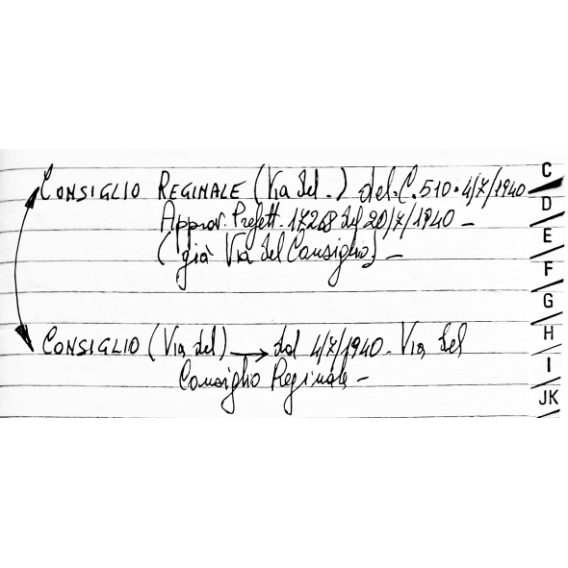 CONSIGLIO REGINALE (Via del.) del. C. 510 - 4/7/1940 -
Approv. Prefett. 17268 del 20/7/1940 -
(già Via del Consiglio) -
CONSIGLIO (Via del) → dal 4/7/1940. Via del
Consiglio Reginale -
C
D
E
F
G
H
I
JK